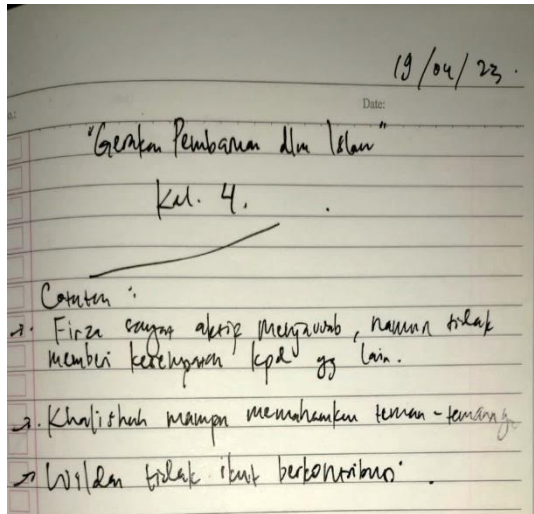 19/04/23.
Date:
"Gerakan Pembaruan dlm Islam"
Kel. 4.
Catatan :
→. Firza sangat aktif menjawab, namun tidak
memberi kesempatan kpd yg lain.
→. Khalishah mampu memahamkan teman-temannya
→ Wildan tidak ikut berkontribusi.